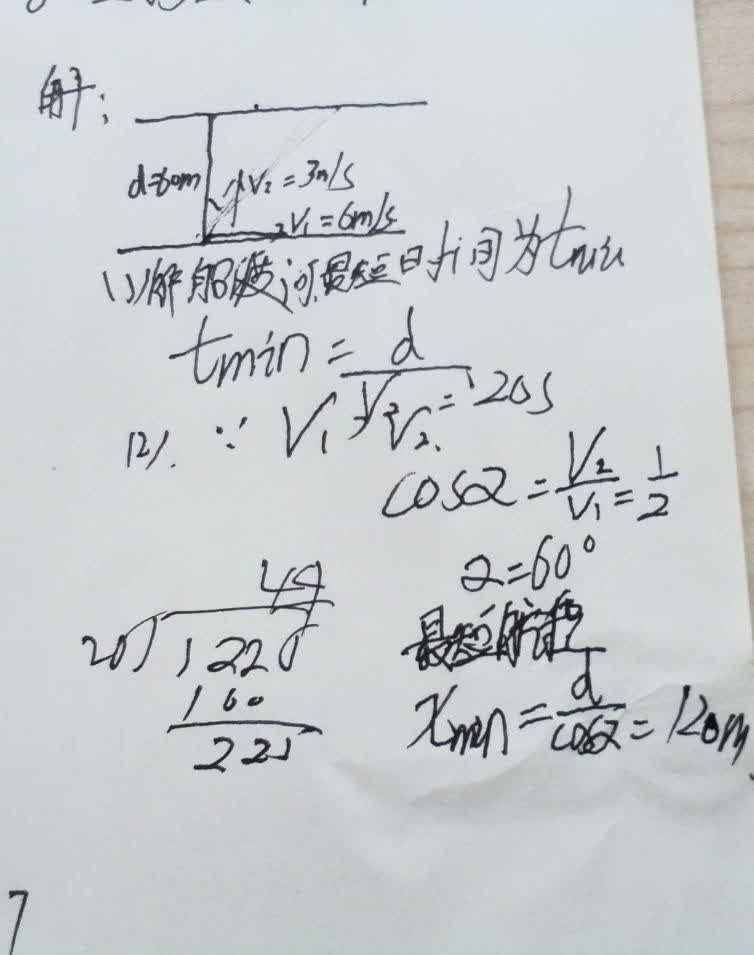 解:
d=60m
V₂=3m/s
V₁=6m/s
(1)解船渡河最短时间为tmin
tmin = d/V₂ = 20s
(2). ∵ V₁>V₂.
cosα = V₂/V₁ = 1/2
α=60°
最短航程
xmin = d/cosα = 120m
44
20)1220
160
225
7